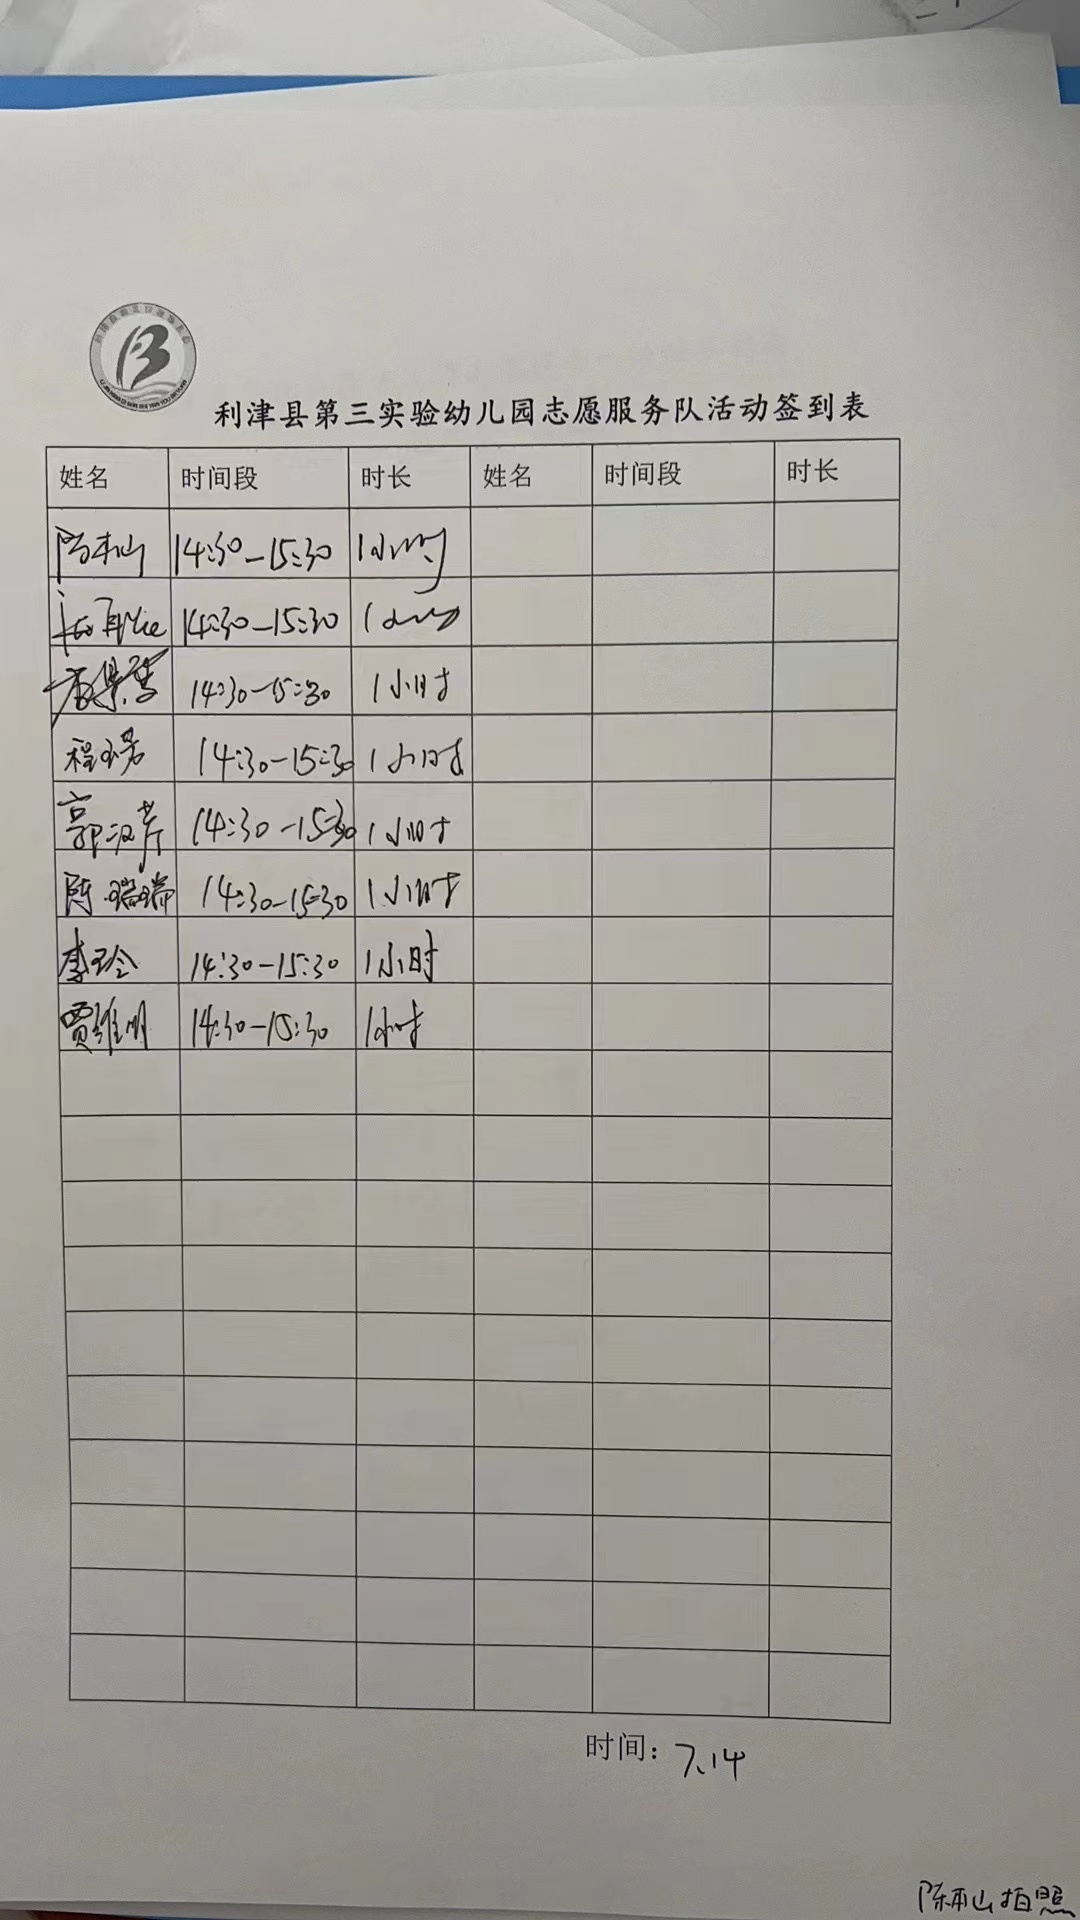 利津县第三实验幼儿园志愿服务队活动签到表
姓名 时间段 时长 姓名 时间段 时长
陈本山 14:30-15:30 1小时
14:30-15:30 1小时
14:30-15:30 1小时
程玉芳 14:30-15:30 1小时
郭汉芹 14:30-15:30 1小时
陈瑞瑞 14:30-15:30 1小时
李玲 14:30-15:30 1小时
贾维明 14:30-15:30 1小时
时间：7.14
陈本山拍照